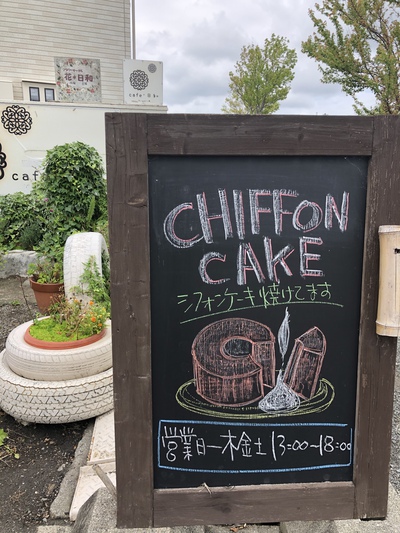 花*日和
cafe
CHIFFON
CAKE
シフォンケーキ焼けてます
営業日ー木金土 13:00~18:00